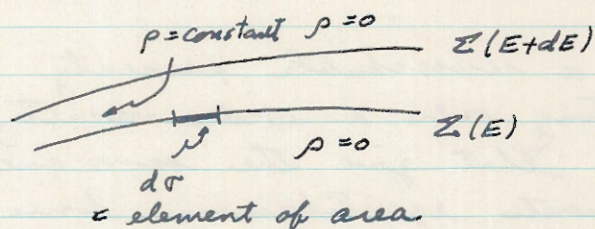 ρ = constant ρ = 0 Σ(E+dE)
ρ = 0 Σ(E)
dσ
= element of area.